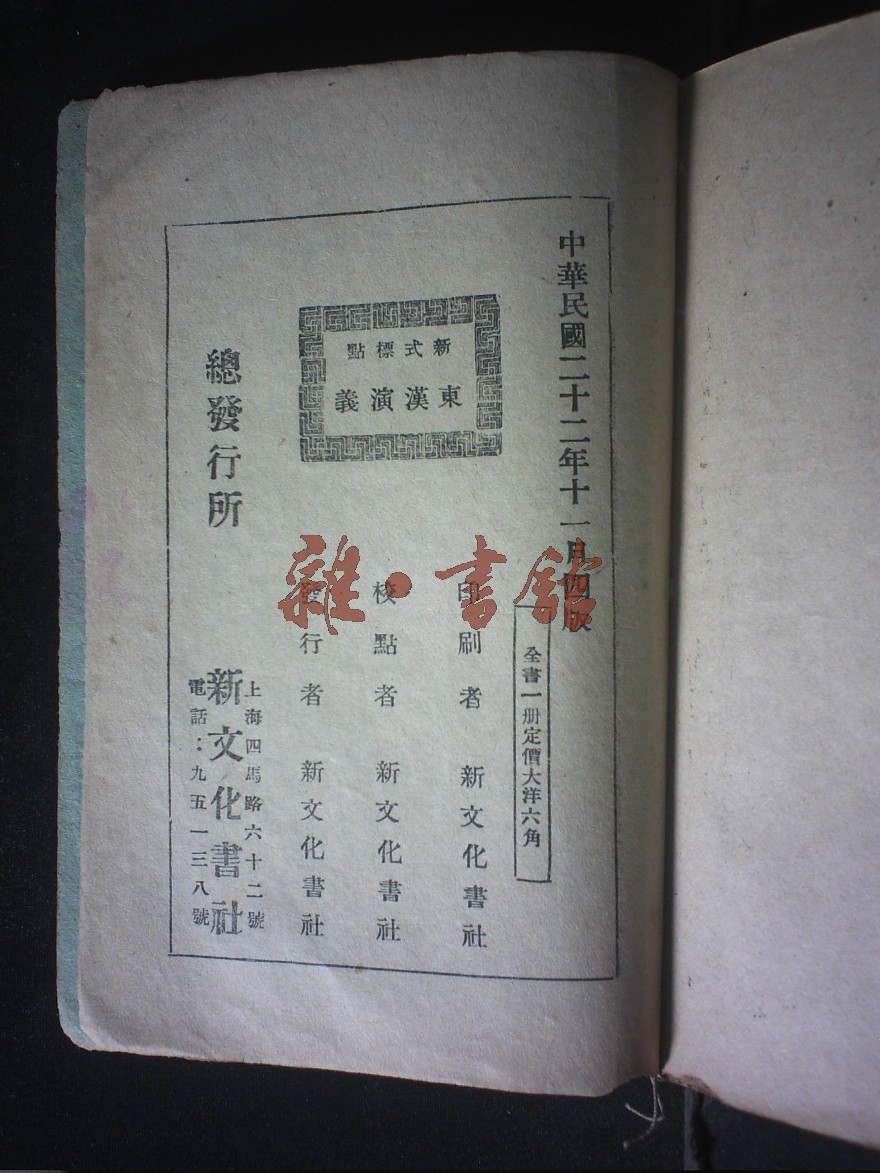 中華民國二十二年十一月四版
全書一册定價大洋六角
新式標點
東漢演義
印刷者 新文化書社
校點者 新文化書社
發行者 新文化書社
總發行所
上海四馬路六十二號
新文化書社
電話：九五一三八號
雜·書館